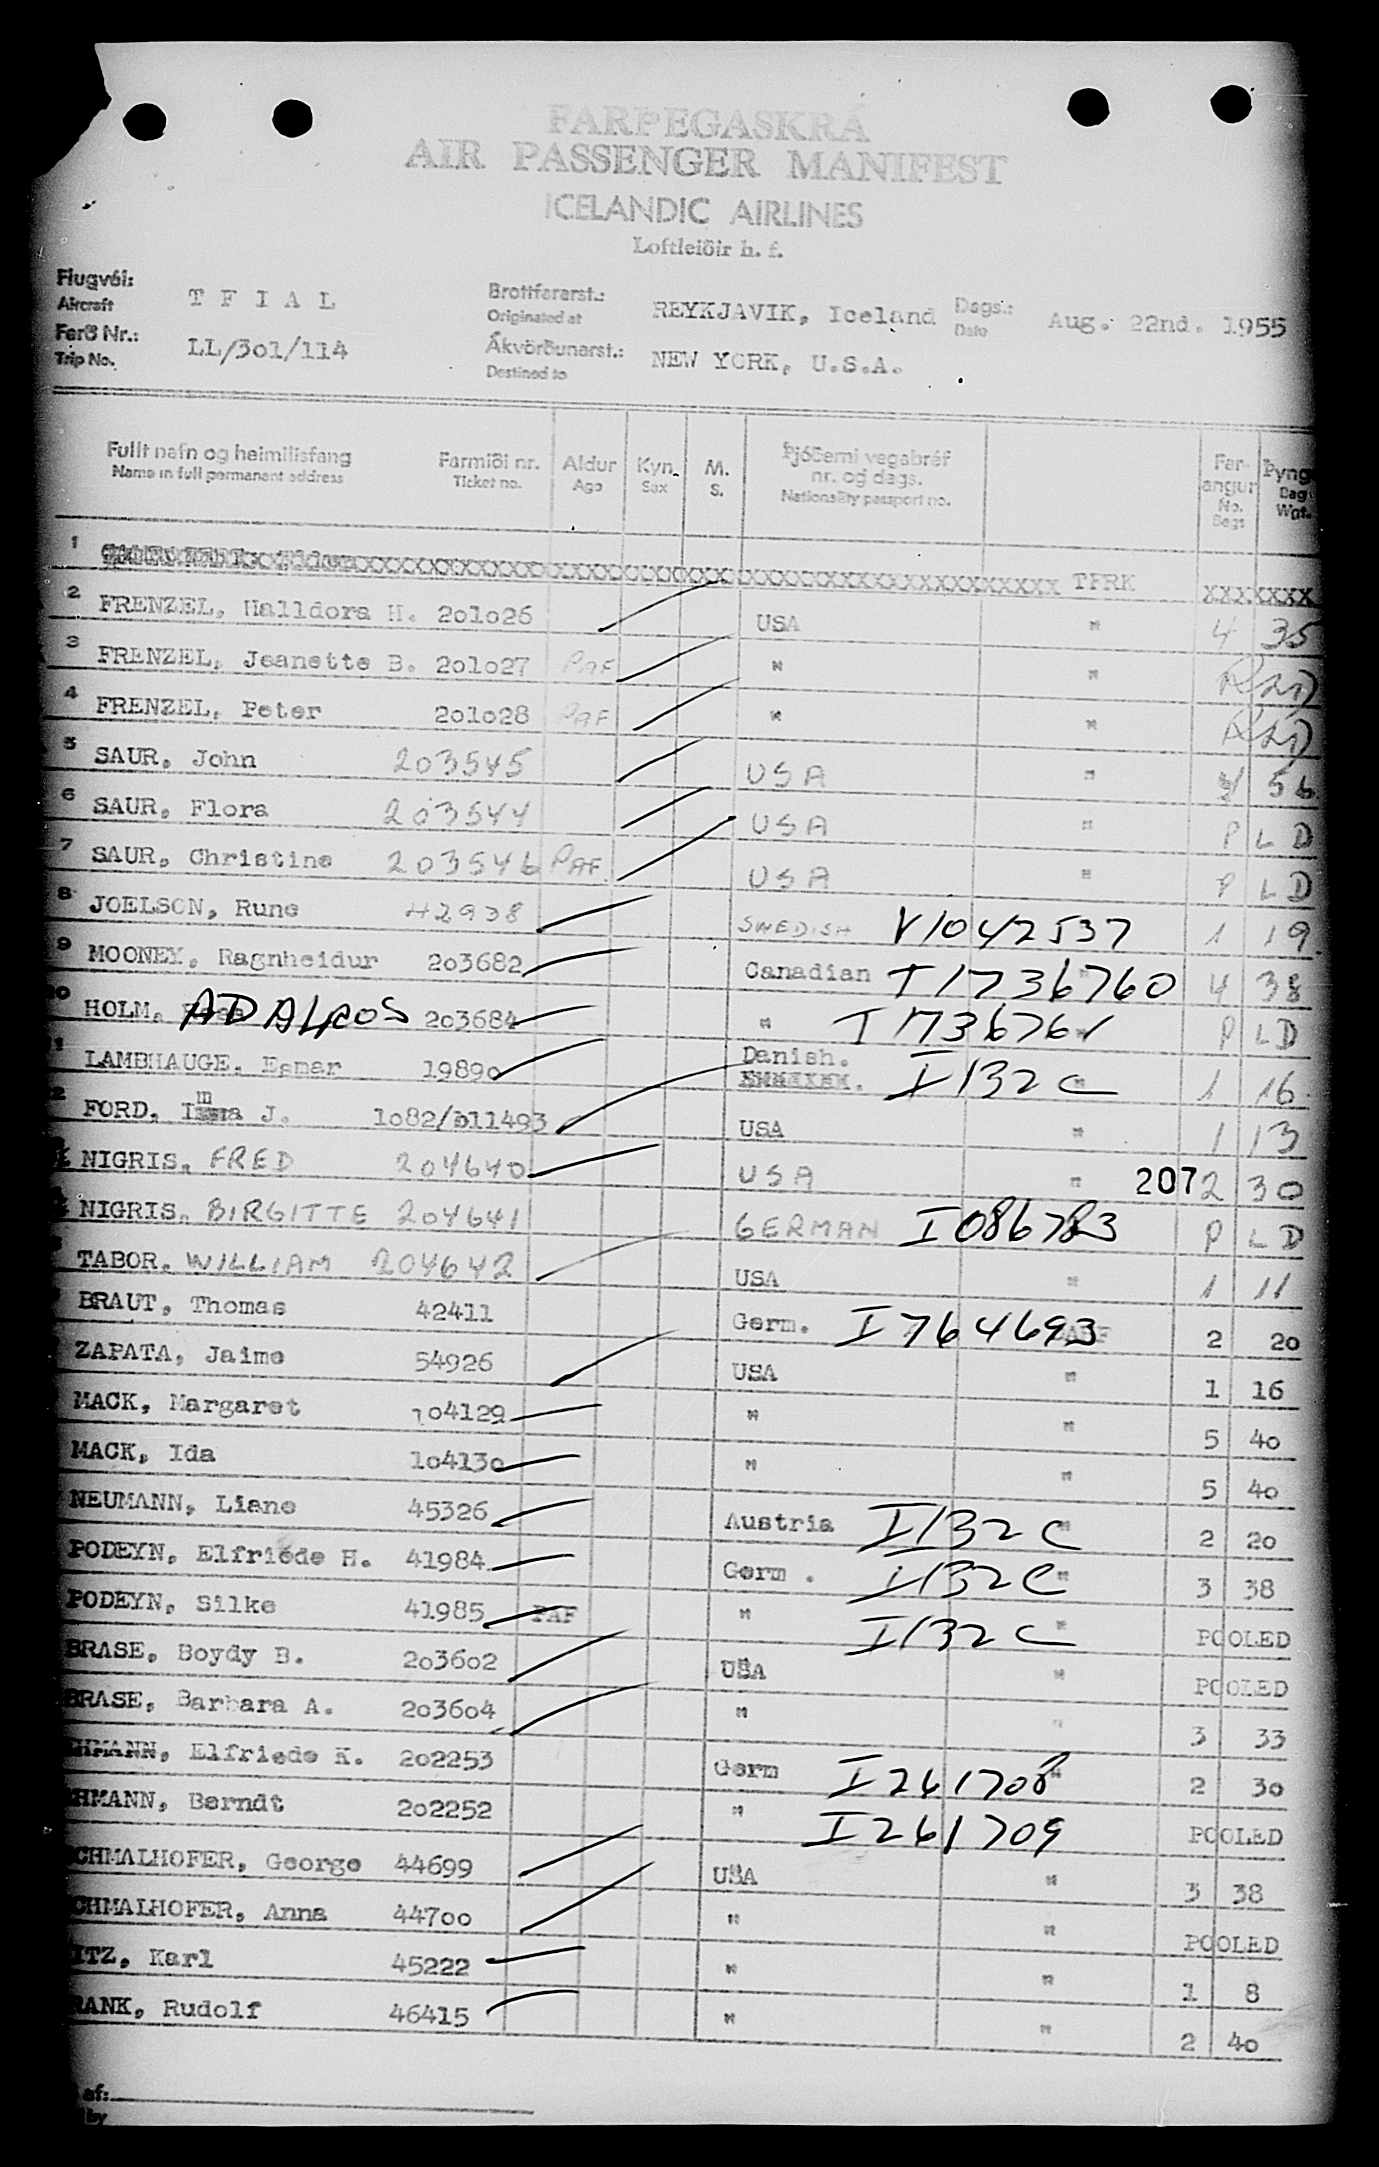 FARÞEGASKRÁ
AIR PASSENGER MANIFEST
ICELANDIC AIRLINES
Loftleiðir h. f.
Flugvél: Aircraft T F I A L Brottfararst.: Originated at REYKJAVIK, Iceland Dags.: Date Aug. 22nd. 1955
Ferð Nr.: Trip No. LL/3o1/114 Ákvörðunarst.: Destined to NEW YORK, U.S.A.
Fullt nafn og heimilisfang Farmiði nr. Aldur Kyn. M. Þjóðerni vegabréf Far- Þyng
Name in full permanent address Ticket no. Age Sex S. nr. og dags. angur Bag
Nationality passport no. No. Bags Wgt.
1 TFRK XXXXXXX
2 FRENZEL, Halldora H. 2o1o26 USA " 4 35
3 FRENZEL, Jeanette B. 2o1o27 PAF " "
4 FRENZEL, Peter 2o1o28 PAF " "
5 SAUR, John 203545 USA " 4 56
6 SAUR, Flora 203544 USA " P L D
7 SAUR, Christine 203546 PAF USA " P L D
8 JOELSON, Rune 42938 SWEDISH V1042537 1 19
9 MOONEY, Ragnheidur 203682 Canadian T1736760 " 4 38
10 HOLM, 203684 " " P L D
11 LAMBHAUGE, Esmar 1989o Danish. I 132 C " 1 16
12 FORD, J. 1o82/b11493 USA " 1 13
NIGRIS, FRED 204640 USA " 207 2 30
NIGRIS, BIRGITTE 204641 GERMAN P L D
TABOR, WILLIAM 204642 USA " 1 11
BRAUT, Thomas 42411 Germ. I 764693 2 20
ZAPATA, Jaime 54926 USA " 1 16
MACK, Margaret 1o4129 " " 5 4o
MACK, Ida 1o413o " " 5 4o
NEUMANN, Liane 45326 Austria I 132 C " 2 2o
PODEYN, Elfriede H. 41984 Germ . I 132 C " 3 38
PODEYN, Silke 41985 PAF " I 132 C " POOLED
BRASE, Boydy B. 2o36o2 USA " POOLED
BRASE, Barbara A. 2o36o4 " " 3 33
HMANN, Elfriede K. 2o2253 Germ I 261708 " 2 3o
HMANN, Berndt 2o2252 " I 261709 POOLED
CHMALHOFER, George 44699 USA " 3 38
CHMALHOFER, Anna 447oo " " POOLED
ITZ, Karl 45222 " " 1 8
RANK, Rudolf 46415 " " 2 4o
af:
by